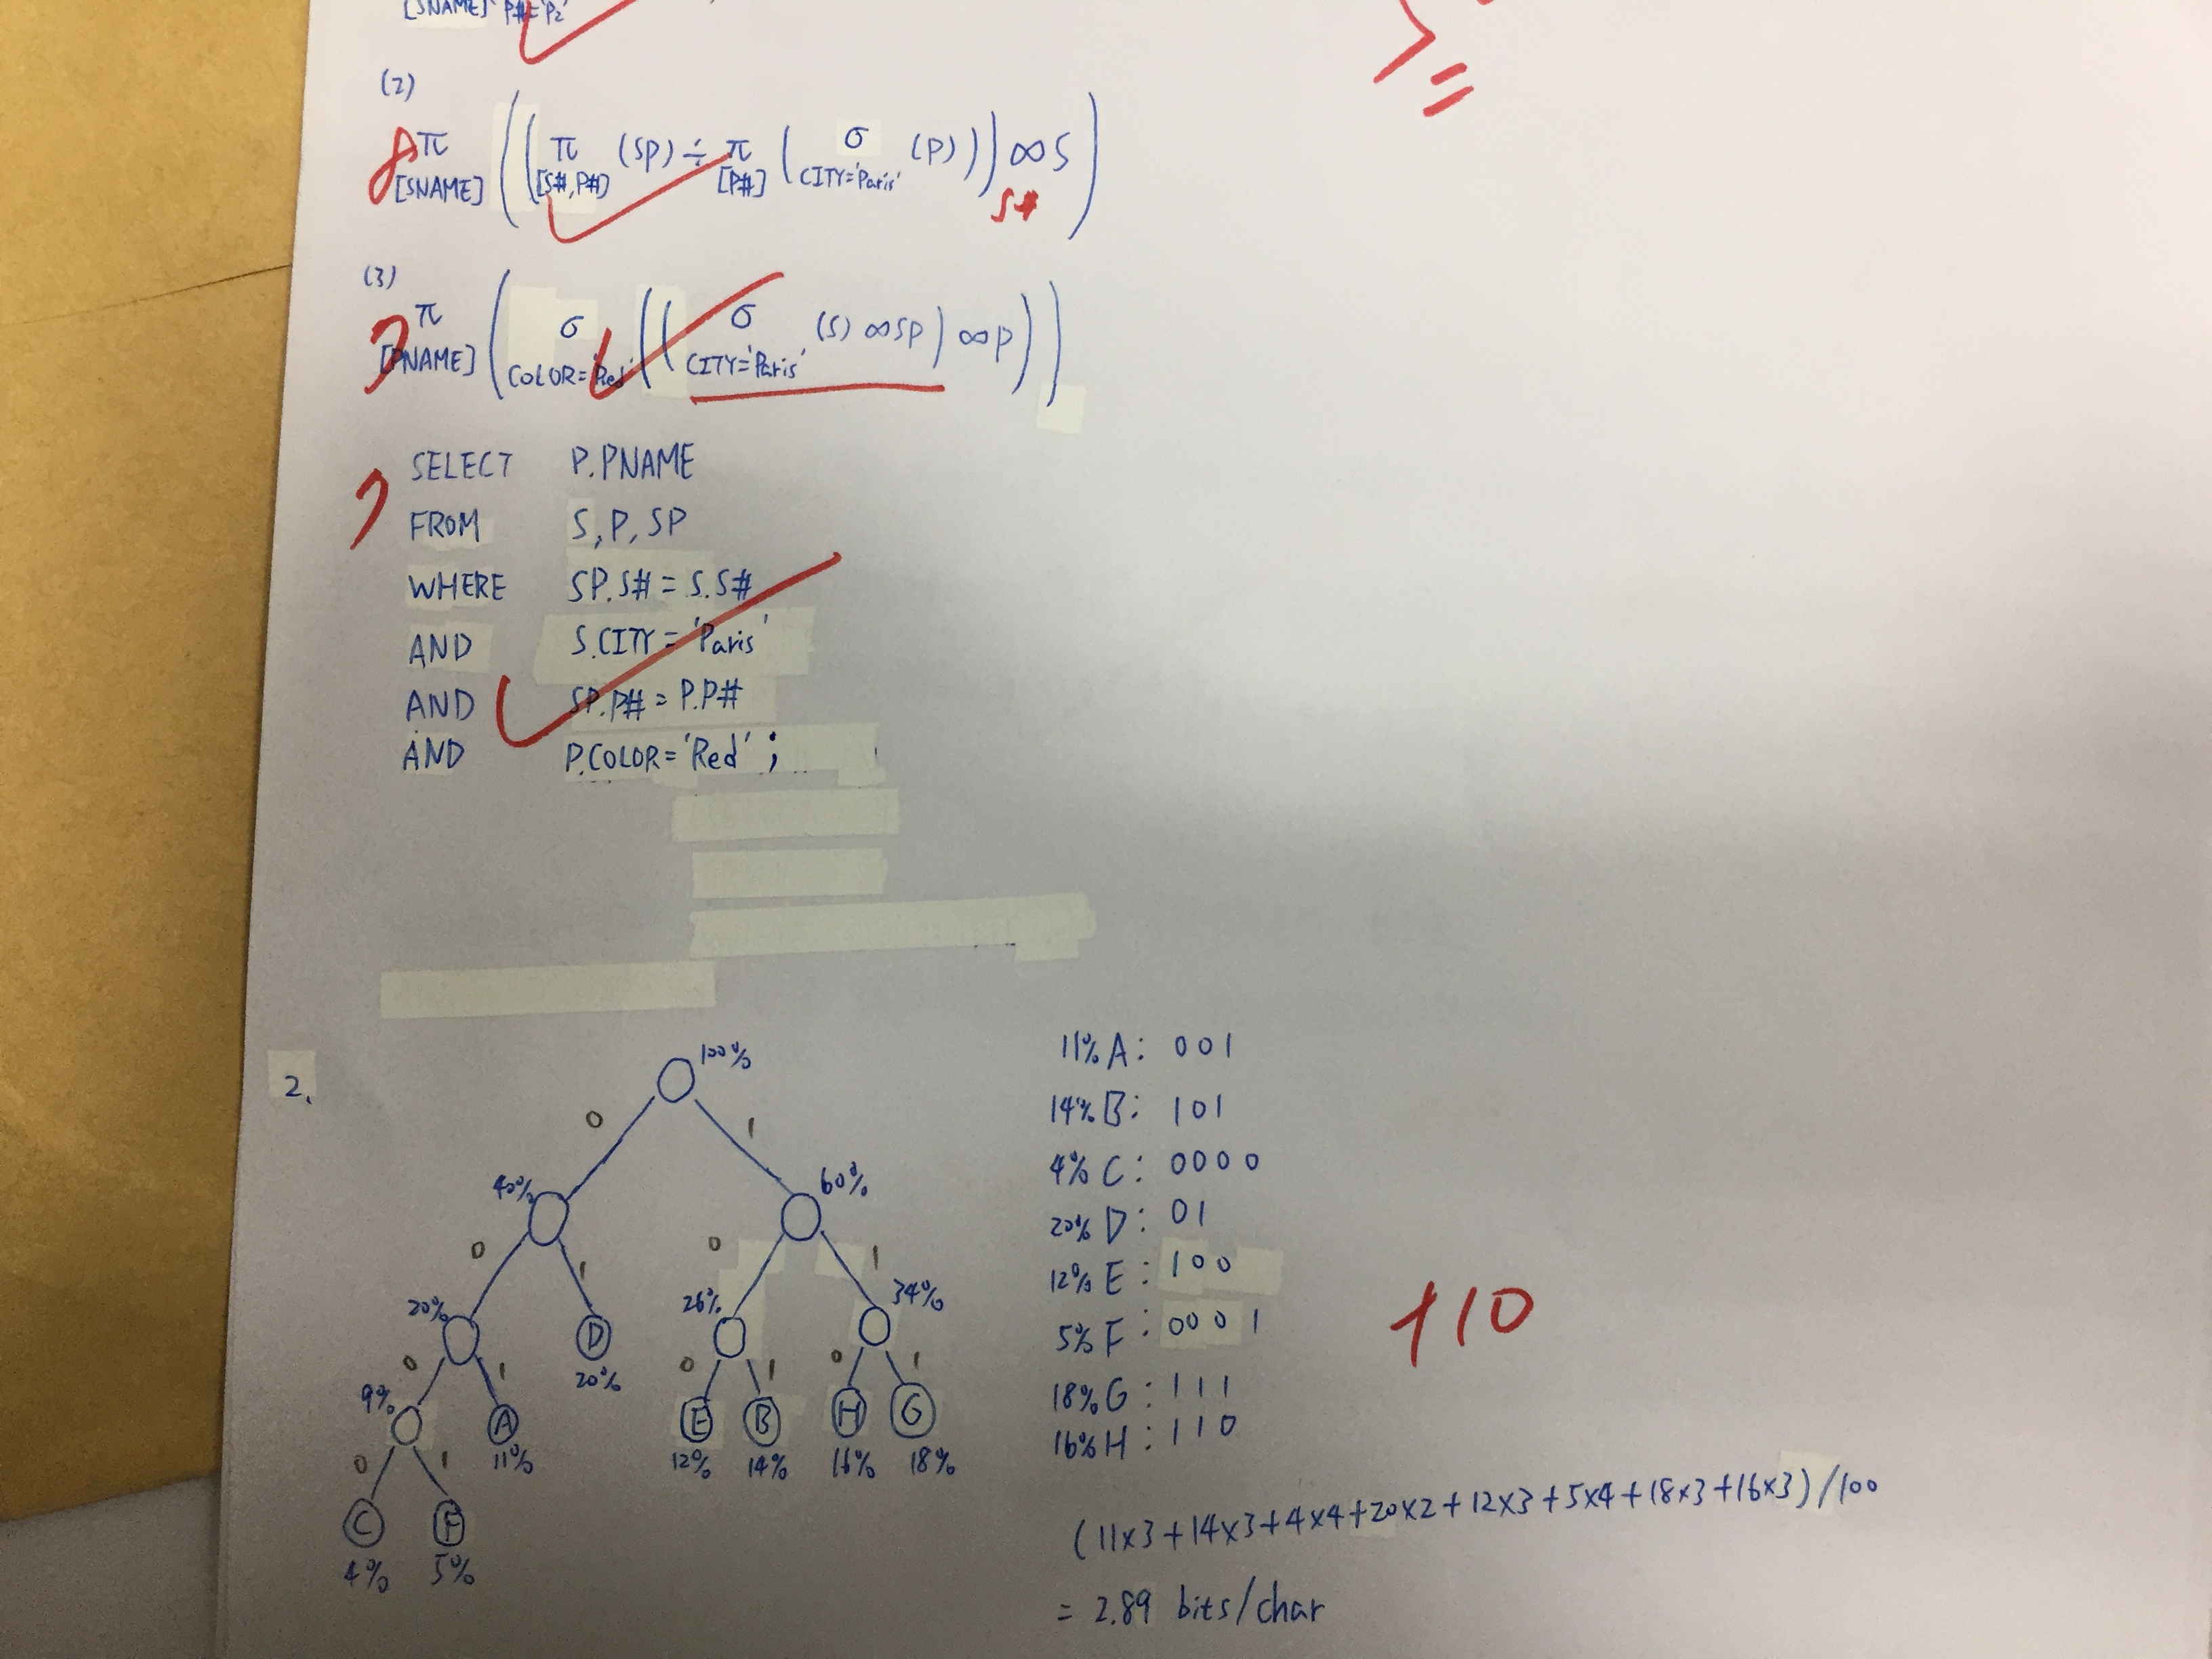 [SNAME] P#='P2'
(2)
8 π [SNAME] ((π [S#,P#] (SP) ÷ π [P#] (σ CITY='Paris' (P))) ∞ S)
S#
(3)
7 π [PNAME] (σ COLOR='Red' ((σ CITY='Paris' (S) ∞ SP) ∞ P))
7
SELECT P.PNAME
FROM S, P, SP
WHERE SP.S# = S.S#
AND S.CITY = 'Paris'
AND SP.P# = P.P#
AND P.COLOR = 'Red' ;
2.
100%
0 1
40% 60%
0 1 0 1
20% D 20% 26% 34%
0 1 0 1 0 1
9% A 11% E 12% B 14% H 16% G 18%
0 1
C 4% F 5%
11% A: 001
14% B: 101
4% C: 0000
20% D: 01
12% E: 100
5% F: 0001
18% G: 111
16% H: 110
+10
(11×3+14×3+4×4+20×2+12×3+5×4+18×3+16×3)/100
= 2.89 bits/char